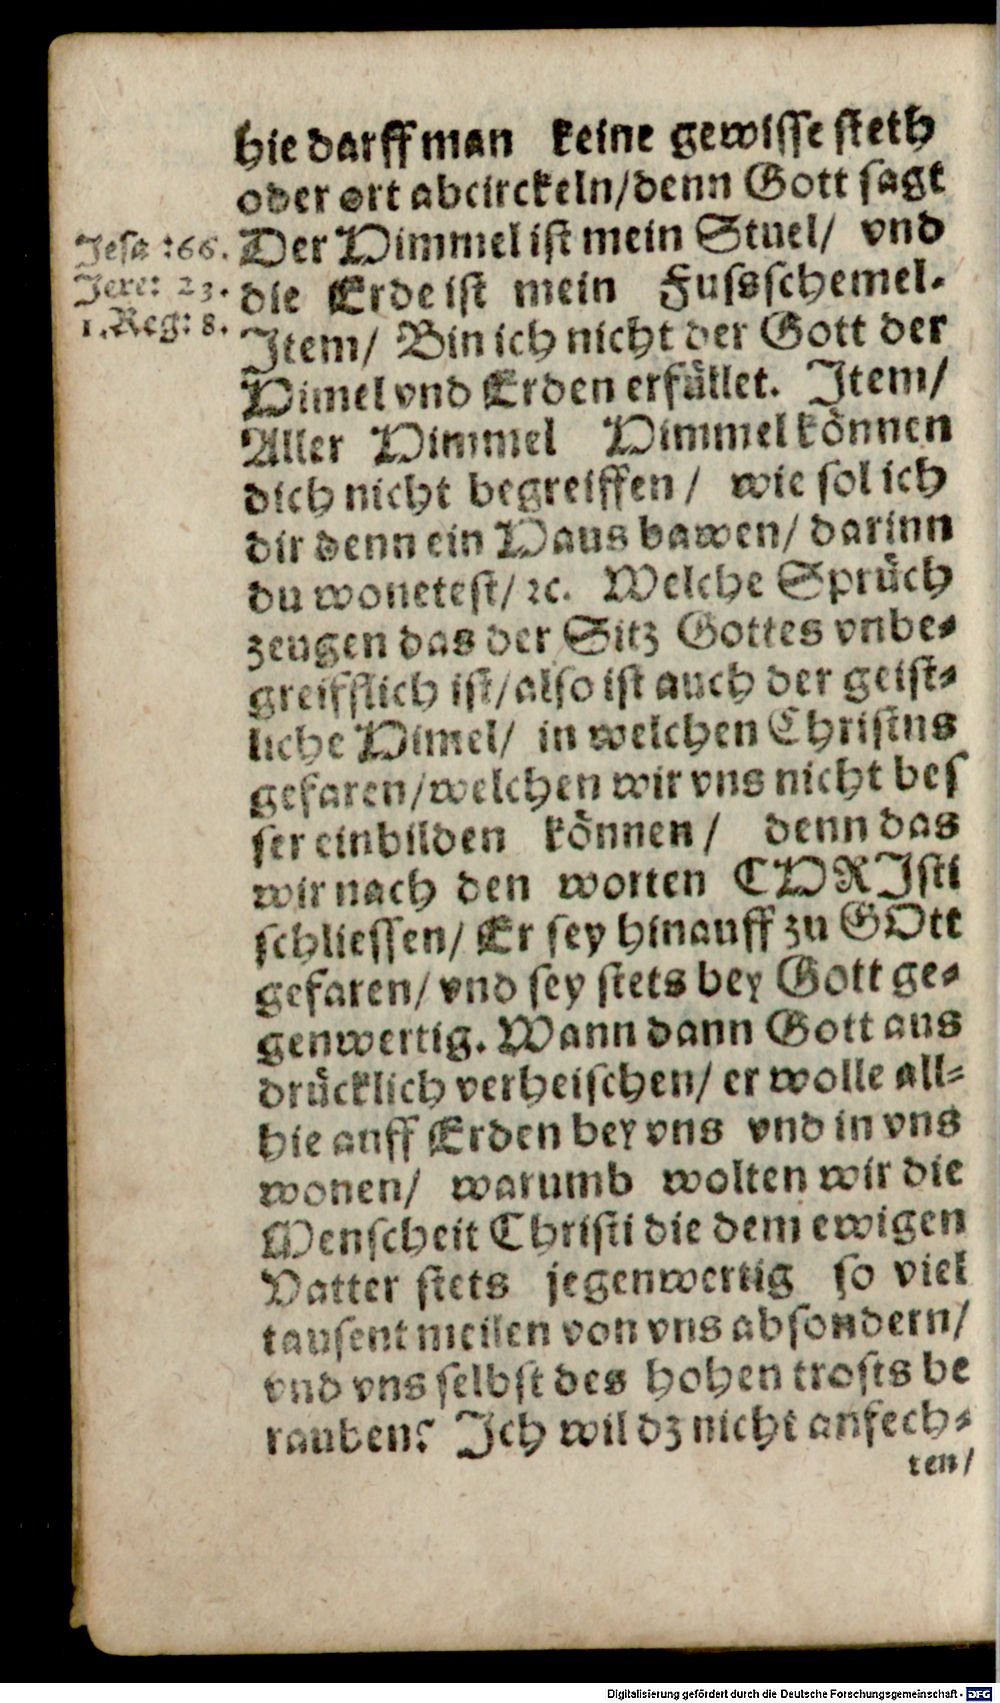 hie darff man keine gewisse steth
oder ort abcirckeln/denn Gott sagt
Jesa :66.
Der Himmel ist mein Stuel/ vnd
Jere: 23.
die Erde ist mein Fussschemel.
1.Reg: 8.
Item/ Bin ich nicht der Gott der
Himel vnd Erden erfüllet. Item/
Aller Himmel Himmel können
dich nicht begreiffen/ wie sol ich
dir denn ein Haus bawen/ darinn
du wonetest/ ꝛc. Welche Sprüch
zeugen das der Sitz Gottes vnbe-
greifflich ist/also ist auch der geist-
liche Himel/ in welchen Christus
gefaren/welchen wir vns nicht bes
ser einbilden können/ denn das
wir nach den worten CHRIsti
schliessen/ Er sey hinauff zu GOtt
gefaren/ vnd sey stets bey Gott ge-
genwertig. Wann dann Gott aus
drücklich verheischen/ er wolle all-
hie auff Erden bey vns vnd in vns
wonen/ warumb wolten wir die
Menscheit Christi die dem ewigen
Vatter stets jegenwertig so viel
tausent meilen von vns absondern/
vnd vns selbst des hohen trosts be
rauben? Ich wil dz nicht anfech-
ten/
Digitalisierung gefördert durch die Deutsche Forschungsgemeinschaft - DFG